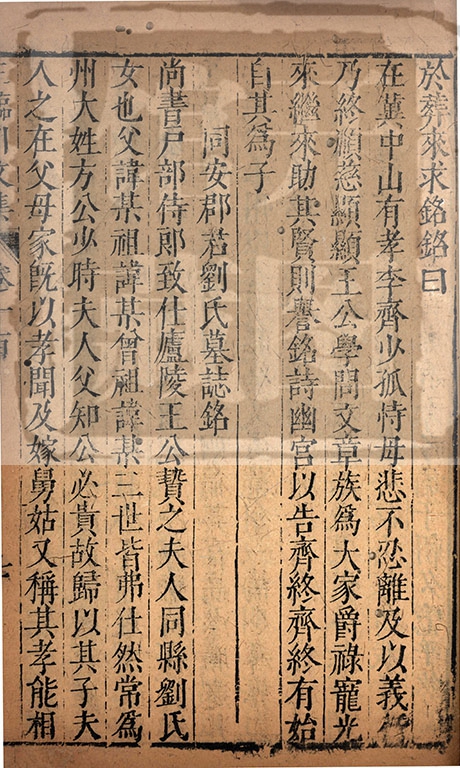 於葬來求銘銘曰
在冀中山有孝李齊少孤恃母悲不忍離及以義
乃終願慈顯顯王公學問文章族爲大家爵祿寵光
來繼來助其賢則譽銘詩幽宮以告齊終齊終有始
自其爲子
同安郡君劉氏墓誌銘
尚書戸部侍郎致仕廬陵王公贄之夫人同縣劉氏
女也父諱某祖諱某曾祖諱某三世皆弗仕然常爲
州大姓方公少時夫人父知公必貴故歸以其子夫
人之在父母家既以孝聞及嫁舅姑又稱其孝能相
王臨川文集 卷一百